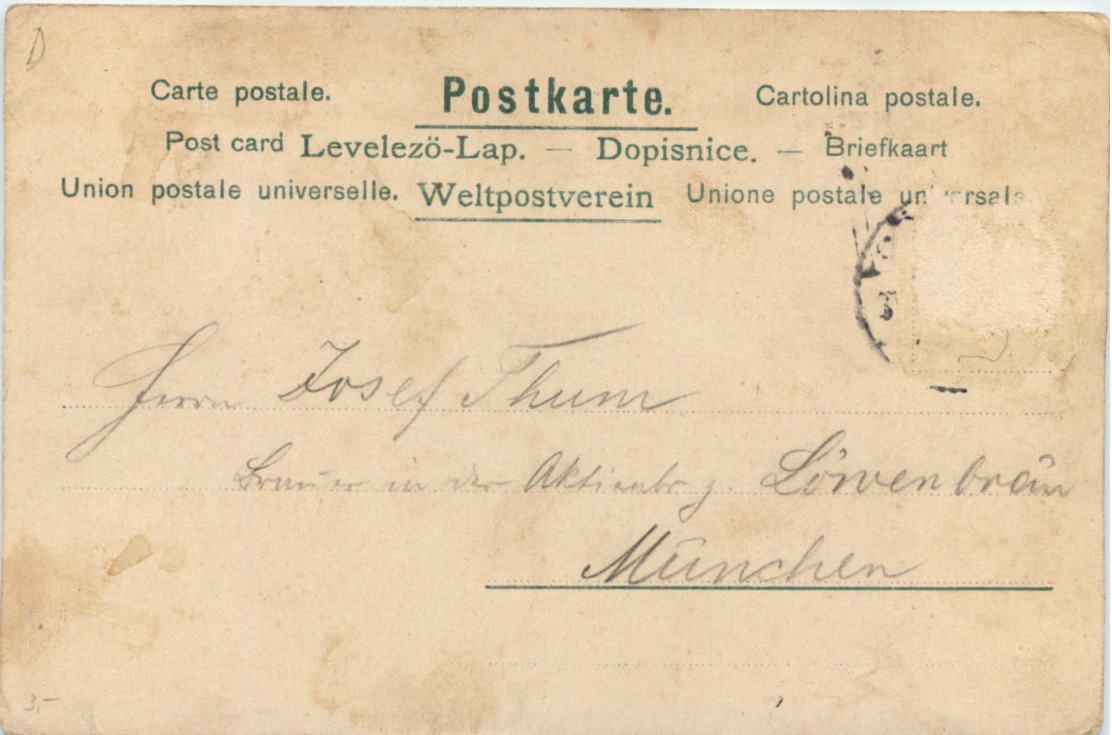 D
Carte postale. Postkarte. Cartolina postale.
Post card Levelezö-Lap. — Dopisnice. — Briefkaart
Union postale universelle. Weltpostverein Unione postale universale
Herrn Josef Thum
Brauer in der Aktienbr. z. Löwenbräu
München
3,-